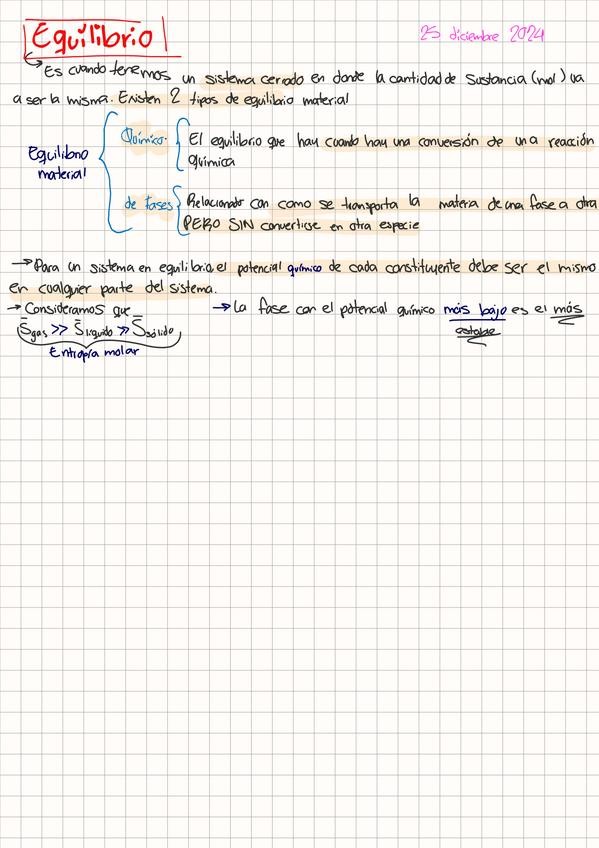 Equilibrio
25 diciembre 2024
Es cuando tenemos un sistema cerrado en donde la cantidad de sustancia (mol) va
a ser la misma. Existen 2 tipos de equilibrio material
Equilibrio
material
Químico
El equilibrio que hay cuando hay una conversión de una reacción
química
de fases
Relacionado con como se transporta la materia de una fase a otra
PERO SIN convertirse en otra especie
→ Para un sistema en equilibrio, el potencial químico de cada constituyente debe ser el mismo
en cualquier parte del sistema.
→ Consideramos que
S̄gas >> S̄líquido >> S̄sólido
Entropía molar
→ La fase con el potencial químico más bajo es el más
estable